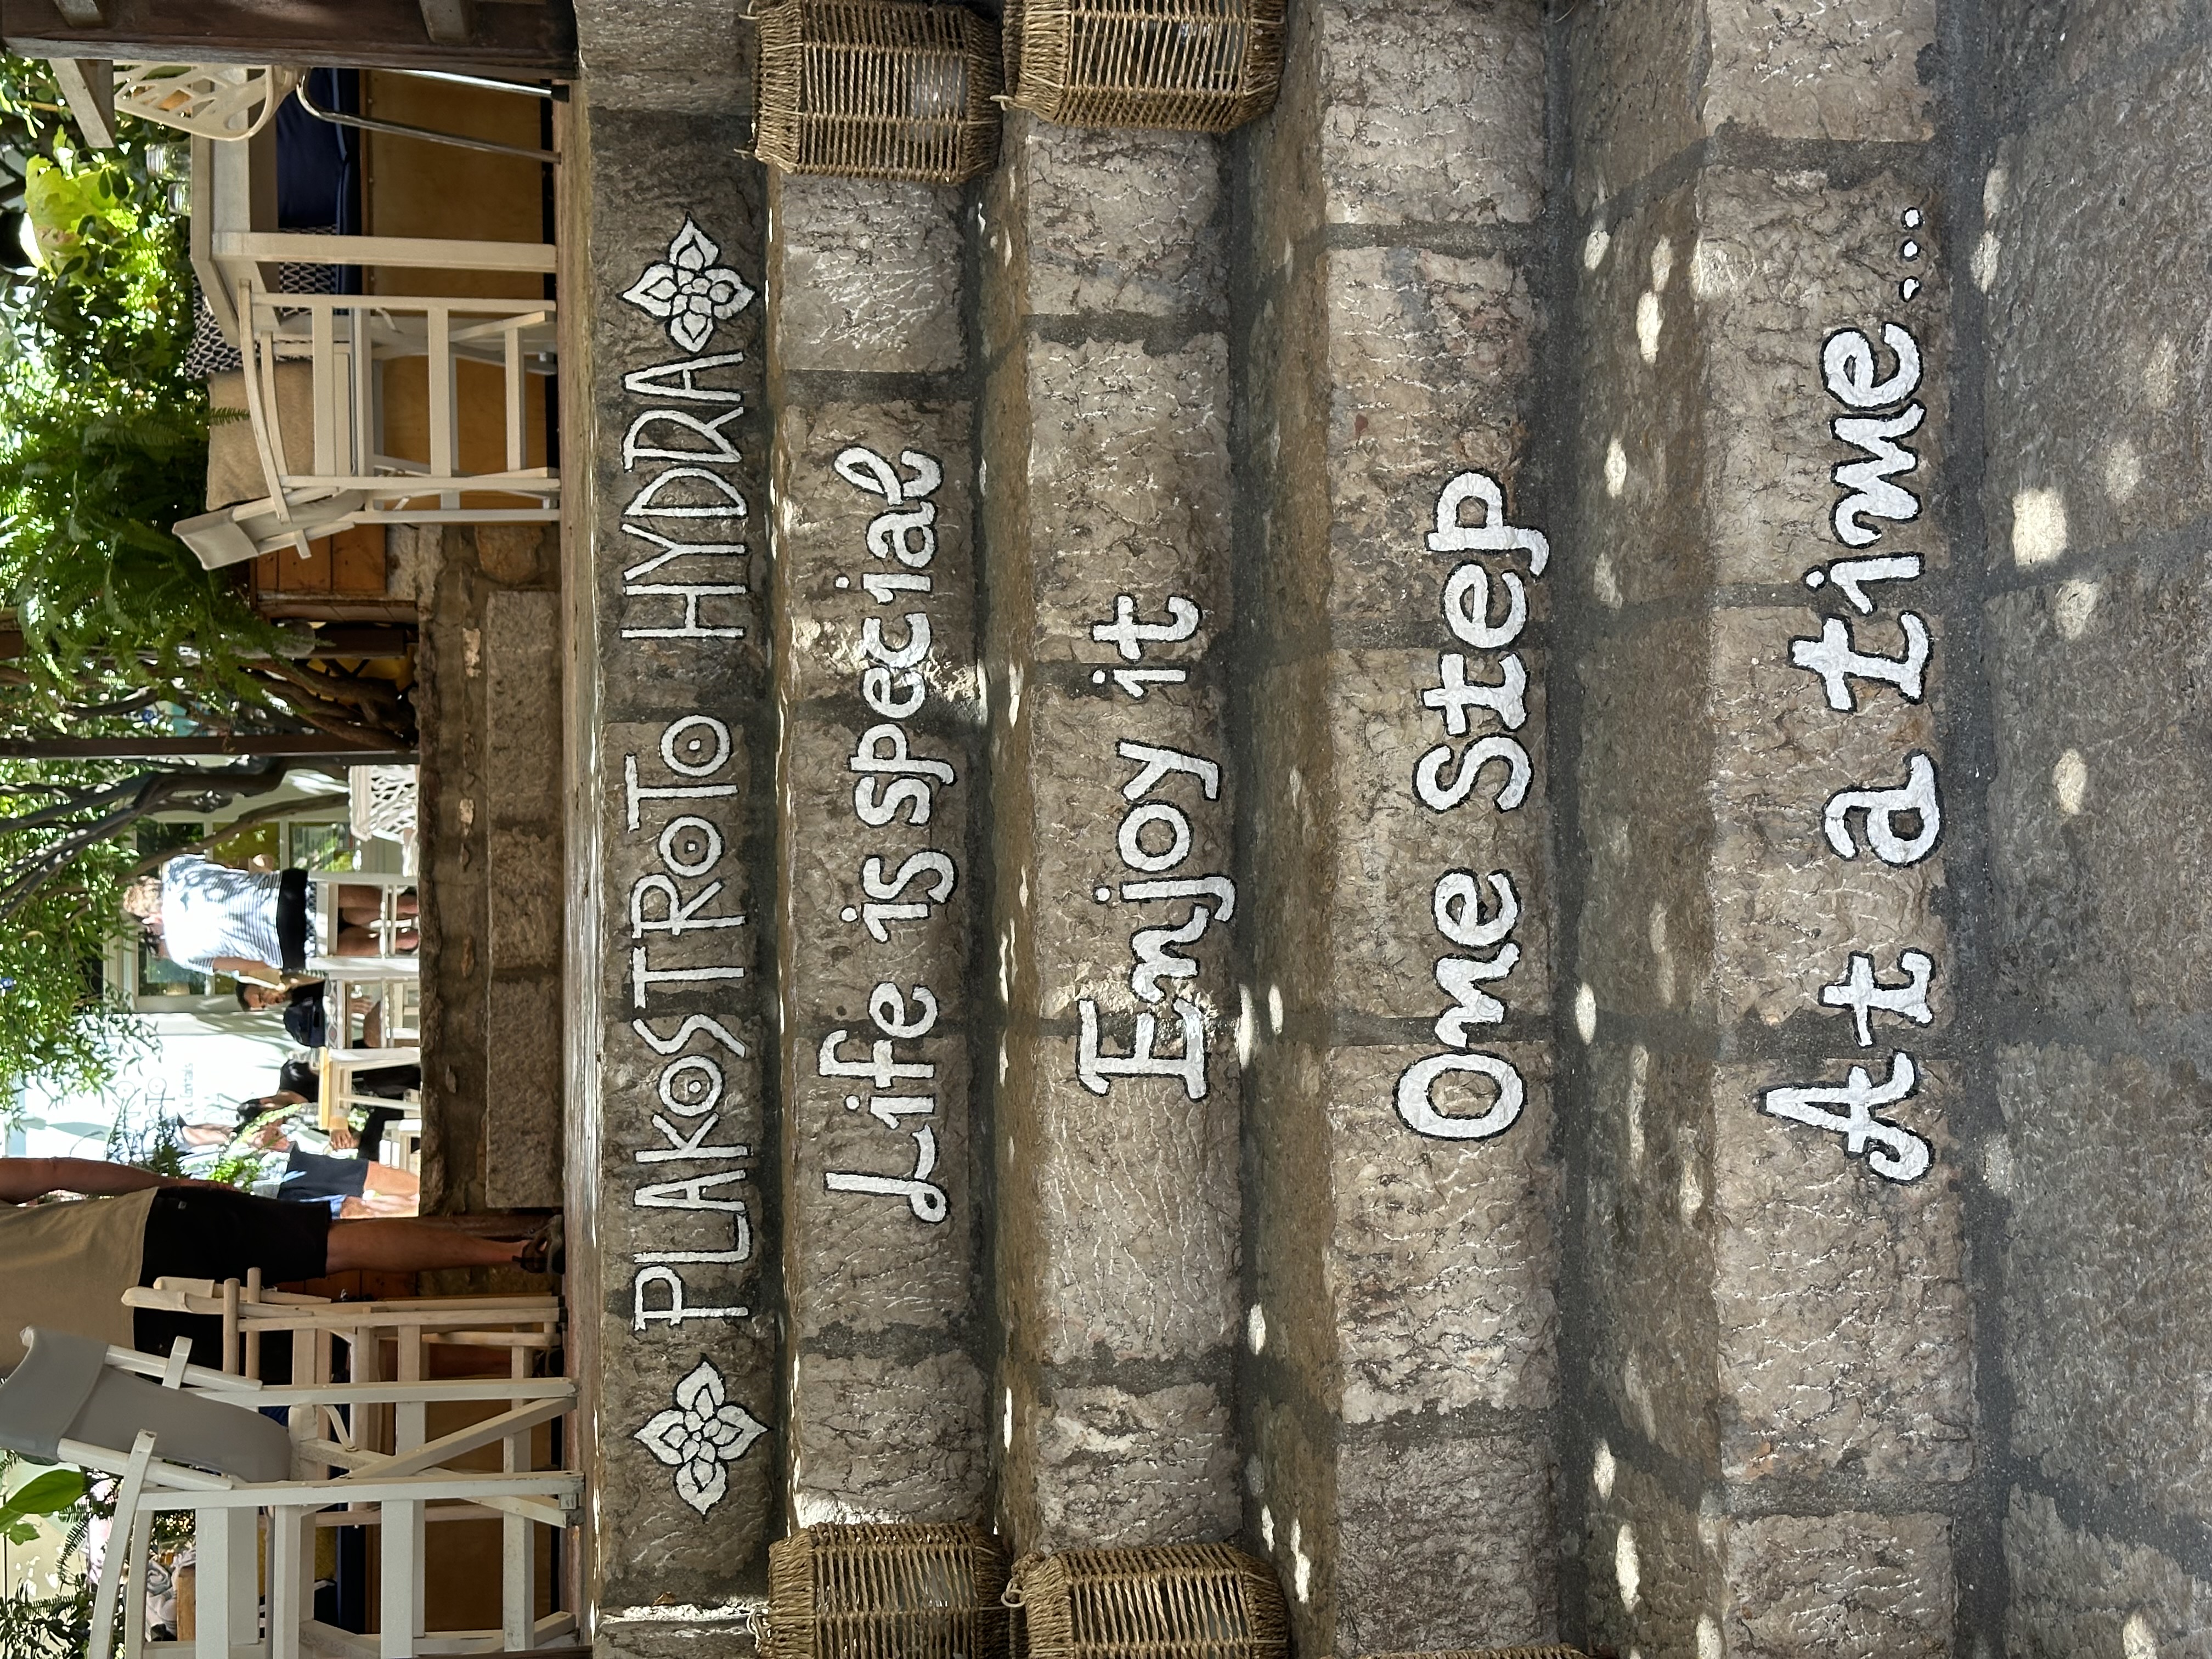 PLAKOSTROTO HYDRA
Life is special
Enjoy it
One Step
At a time...